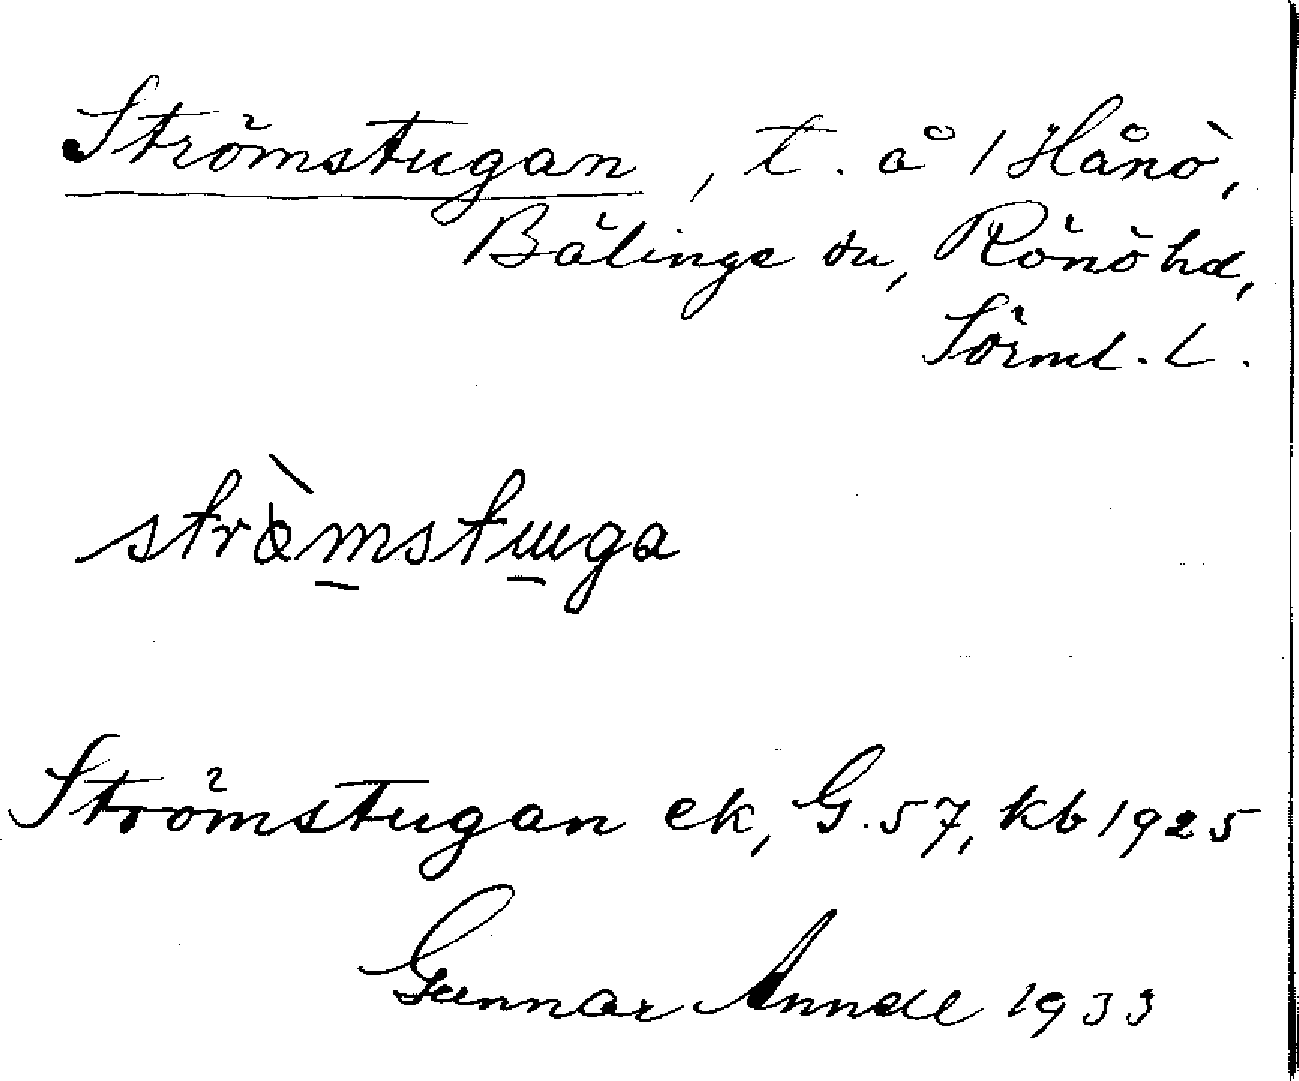 Strömstugan, t. å 1 Hånö,
Bälinge sn, Rönö hd,
Sörml. l.
stròmstɯga
Strömstugan ek, G.57, kb 1925
Gunnar Anndl 1933